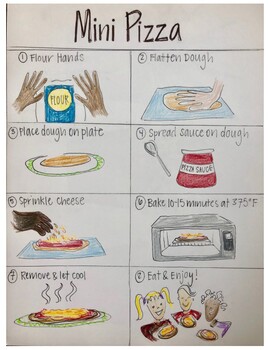 Mini Pizza
① Flour Hands
FLOUR
② Flatten Dough
③ Place dough on plate
④ Spread sauce on dough
PIZZA SAUCE
⑤ Sprinkle Cheese
⑥ Bake 10-15 minutes at 375°F
⑦ Remove & let cool
⑧ Eat & Enjoy!